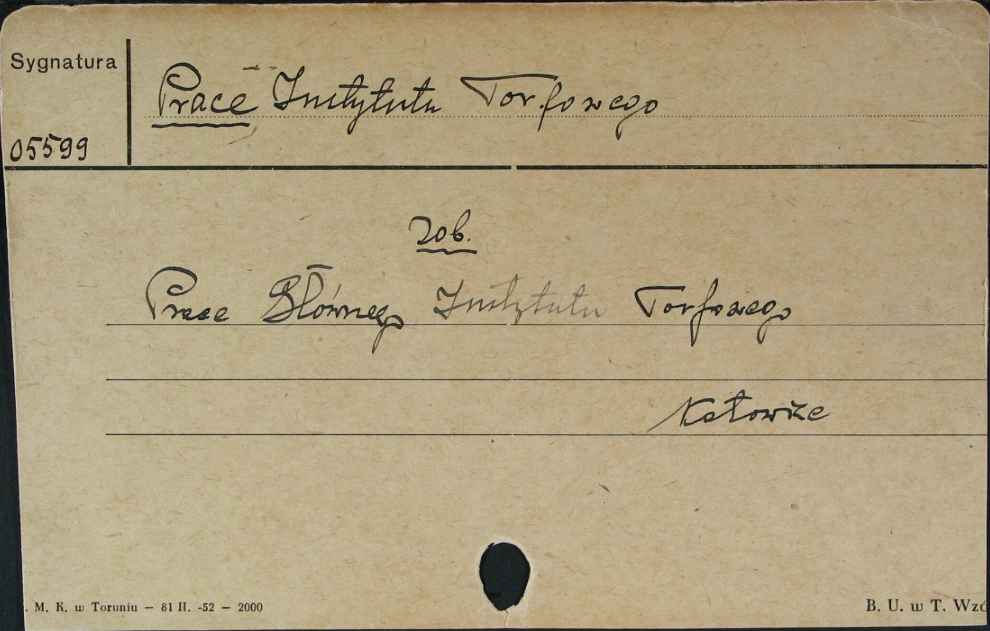 Sygnatura
Prace Instytutu Torfowego
05599
zob.
Prace Głównego Instytutu Torfowego
Katowice
. M. K. w Toruniu — 81 II. -52 — 2000
B. U. w T. Wzó